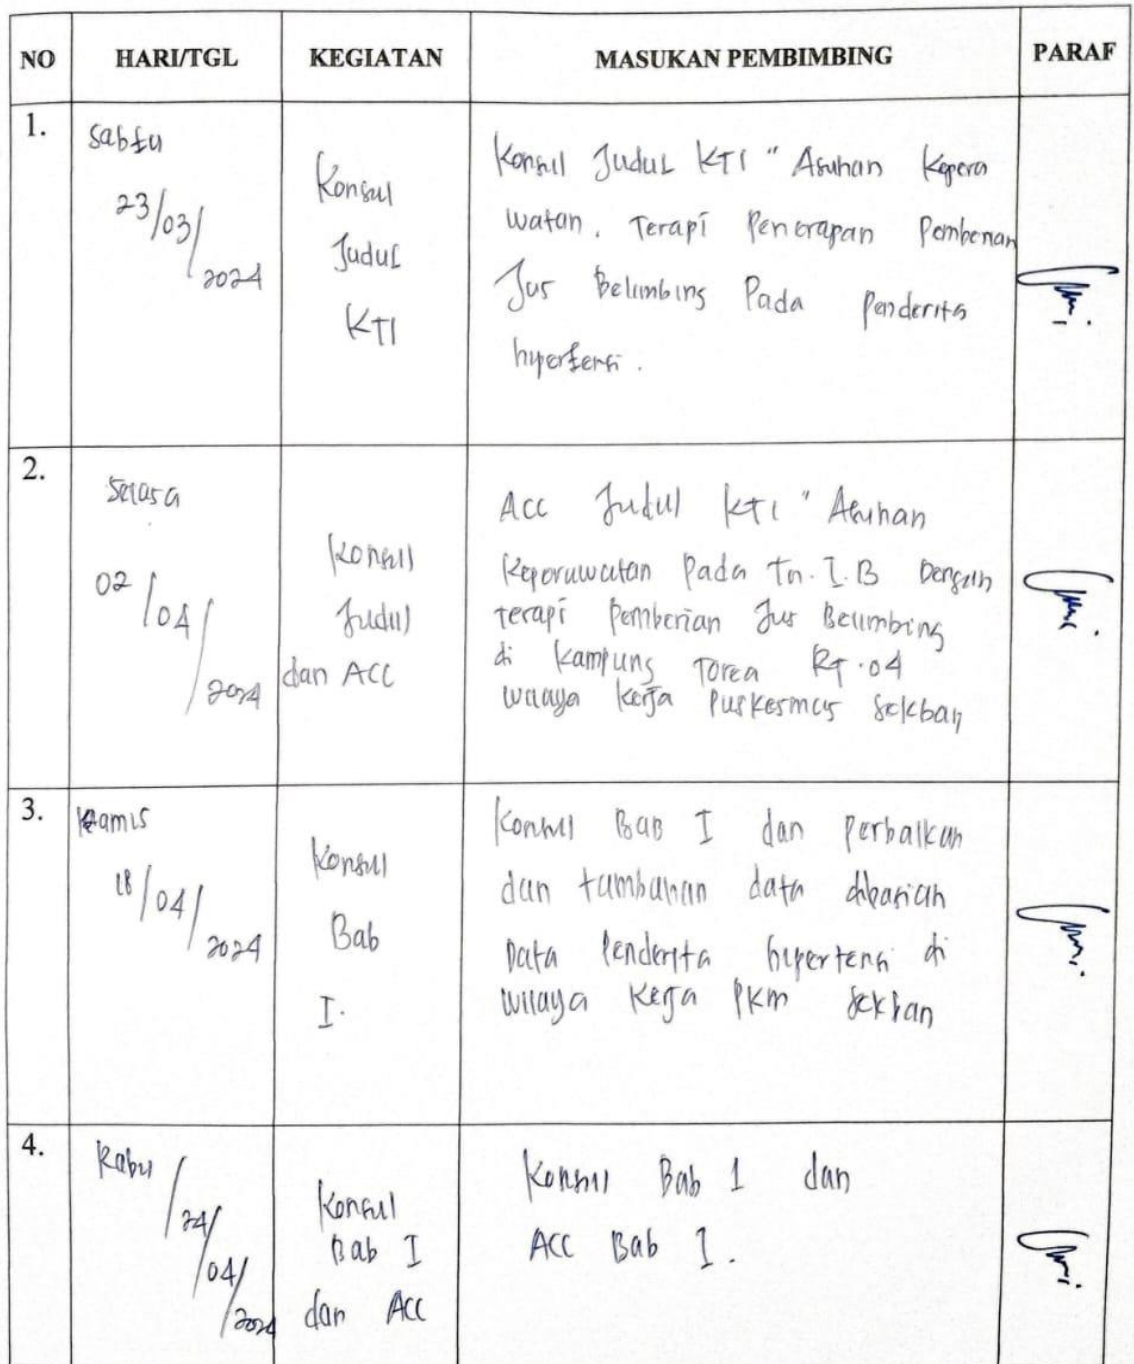 NO HARI/TGL KEGIATAN MASUKAN PEMBIMBING PARAF
1.
Sabtu
23/03/
2024
Konsul
Judul
KTI
Konsul Judul KTI " Asuhan Kepera
watan. Terapi Penerapan Pemberian
Jus Belimbing Pada Penderita
hipertensi.
2.
Selasa
02/04/
2024
Konsul
Judul
dan ACC
ACC Judul KTI " Asuhan
Keperawatan Pada Tn. I.B Dengan
terapi Pemberian Jus Belimbing
di Kampung Torea RT.04
wilaya kerja Puskesmas Sekban
3.
Kamis
18/04/
2024
Konsul
Bab
I.
Konsul Bab I dan Perbaikan
dan tambahan data
Data Penderita hipertensi di
wilaya Kerja PKM Sekban
4.
Rabu
24/
04/
2024
Konsul
Bab I
dan ACC
Konsul Bab 1 dan
ACC Bab I.